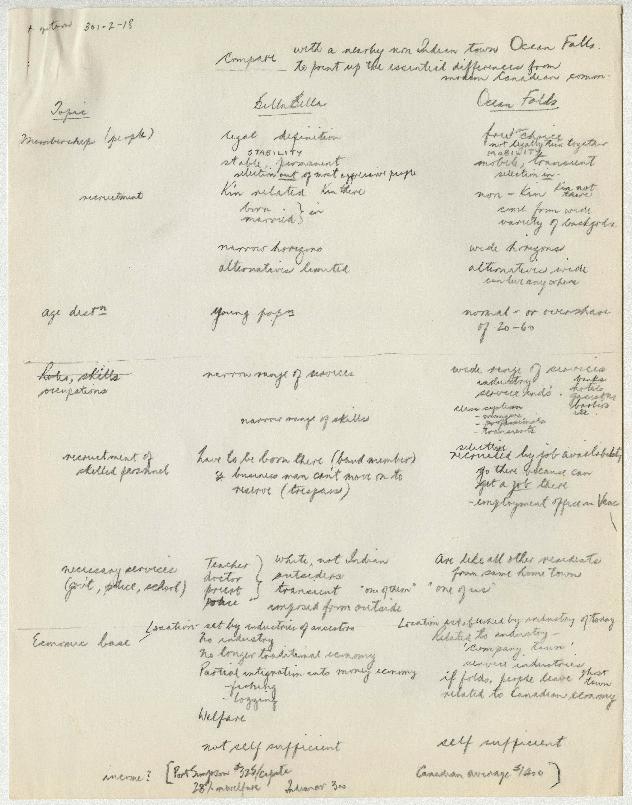 301-2-18
Compare with a nearby non Indian town Ocean Falls.
to point up the essential differences from
modern Canadian comm.
Topic Bella Bella Ocean Falls
Membership (people) legal definition free choice
not legally kin together
STABILITY MOBILITY
stable, permanent mobile, transient
selection out of most aggressive people selection in-
recruitment Kin related Kin there non-Kin Kin not there
born } in come from wide
married variety of backgds
narrow horizons wide horizons
alternatives limited alternatives wide
can live anywhere
age distn young popn normal - or overshare
of 20-60
Roles, skills narrow range of services wide range of services
occupations industry banks
service inds. hotels
narrow range of skills class system barbers
- managers etc.
- professionals
- transients
selective
recruitment of have to be born there (band member) recruited by job availability
skilled personnel & business man can't move on to go there because can
reserve (trespass) get a job there
- employment office in Vanc
necessary services Teacher } white, not Indian are like all other residents
doctor outsiders from same home town
(govt, police, school) priest transient "one of them" "one of us"
police imposed from outside
Location set by industries of ancestors Location established by industry of today
Economic base No industry Related to industry -
No longer traditional economy 'company town'
service industries
Partial integration into money economy if folds, people leave Ghost town
- fishing related to Canadian economy
- logging
Welfare
not self sufficient self sufficient
income? [Port Simpson $325/capita Canadian average $1400]
28% on welfare